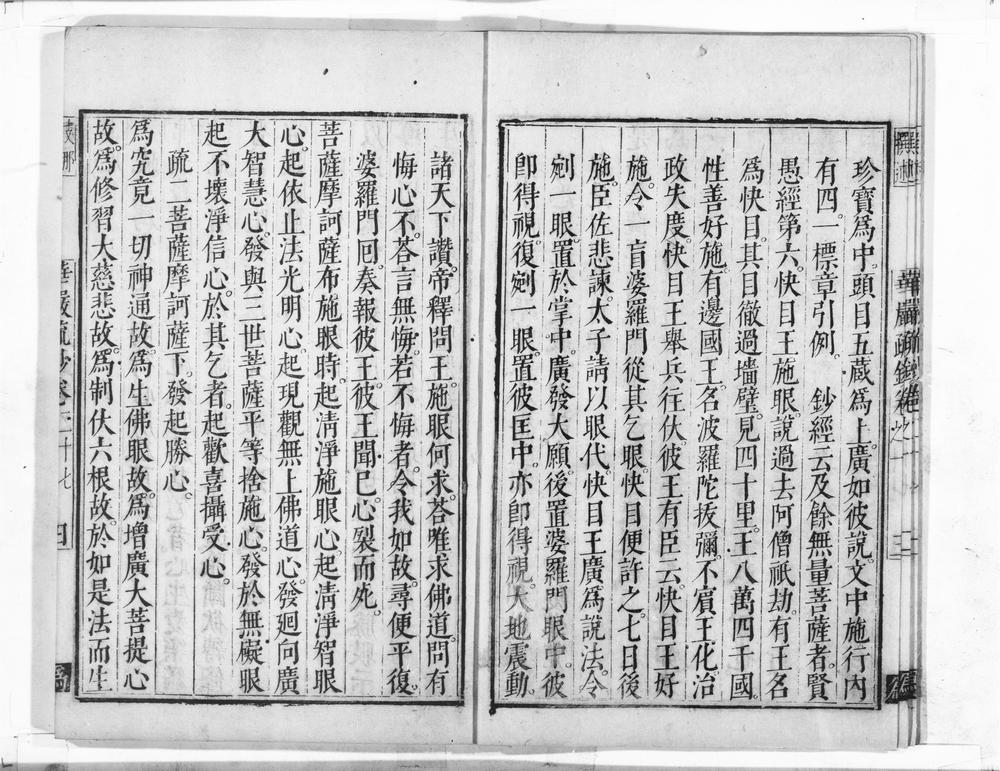 珍寶爲中。頭目五藏爲上。廣如彼說。文中施行內
有四。一標章引例。　鈔經云及餘無量菩薩者。賢
愚經第六。快目王施眼。說過去阿僧祇劫。有王名
爲快目。其目徹過墻壁。見四十里。王八萬四千國。
性善好施。有邊國王。名波羅陀拔彌。不賓王化。治
政失度。快目王舉兵往伏。彼王有臣云。快目王好
施。令一盲婆羅門從其乞眼。快目便許之。七日後
施。臣佐悲諫。太子請以眼代。快目王廣爲說法。令
剜一眼。置於掌中。廣發大願。後置婆羅門眼中。彼
卽得視。復剜一眼。置彼匡中。亦卽得視。大地震動。
諸天下讚。帝釋問王。施眼何求。荅唯求佛道。問有
悔心不。荅言無悔。若不悔者。令我如故。尋便平復。
婆羅門囘。奏報彼王。彼王聞已。心裂而死。
菩薩摩訶薩布施眼時。起清淨施眼心。起清淨智眼
心。起依止法光明心。起現觀無上佛道心。發迴向廣
大智慧心。發與三世菩薩平等捨施心。發於無礙眼
起不壞淨信心。於其乞者。起歡喜攝受心。
疏二菩薩摩訶薩下。發起勝心。
爲究竟一切神通故。爲生佛眼故。爲增廣大菩提心
故。爲修習大慈悲故。爲制伏六根故。於如是法而生
華嚴疏鈔卷三十七
四